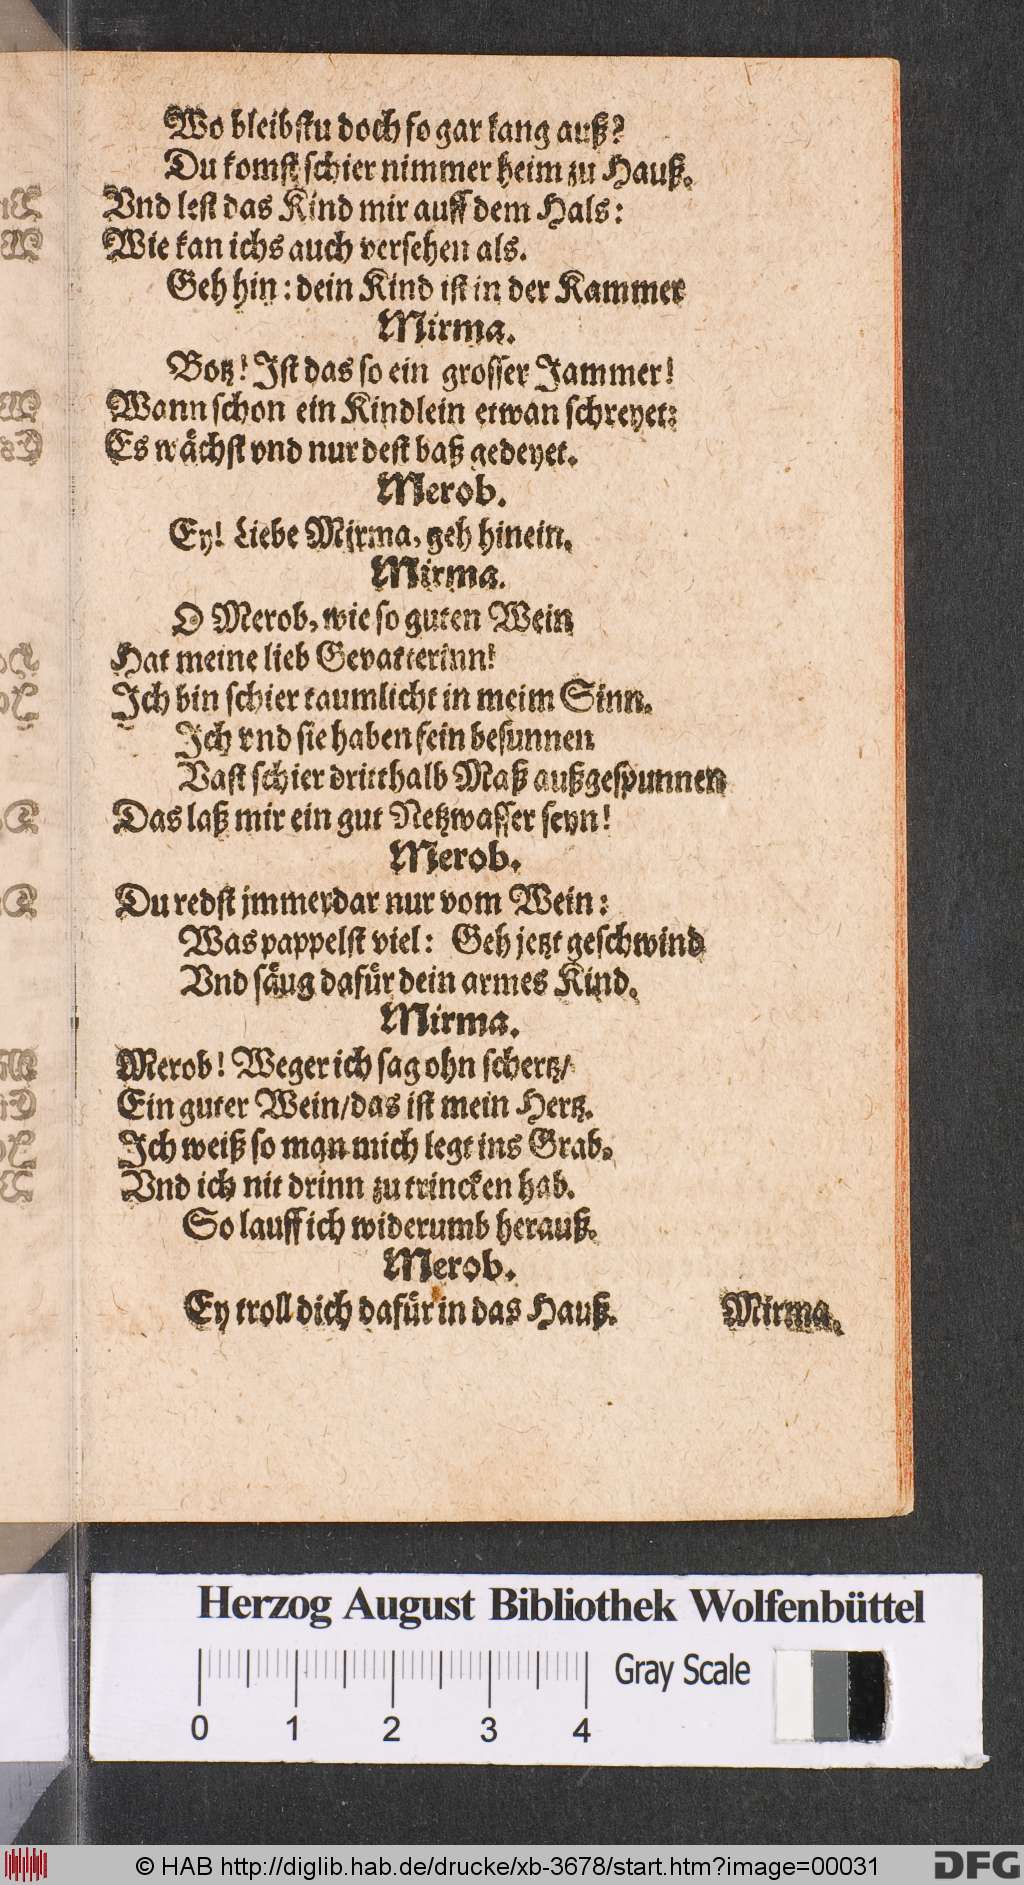 Wo bleibstu doch so gar lang auß?
Du komst schier nimmer heim zu Hauß.
Vnd lest das Kind mir auff dem Hals:
Wie kan ichs auch versehen als.
Geh hin: dein Kind ist in der Kammer
Mirma.
Botz! Ist das so ein grosser Jammer!
Wann schon ein Kindlein etwan schreyet:
Es wächst vnd nur dest baß gedeyet.
Merob.
Ey! Liebe Mirma, geh hinein.
Mirma.
O Merob, wie so guten Wein
Hat meine lieb Gevatterinn!
Ich bin schier taumlicht in meim Sinn.
Ich vnd sie haben fein besunnen
Vast schier dritthalb Maß außgespunnen
Das laß mir ein gut Netzwasser seyn!
Merob.
Du redst jmmerdar nur vom Wein:
Was pappelst viel: Geh jetzt geschwind
Vnd säug dafür dein armes Kind.
Mirma.
Merob! Weger ich sag ohn schertz/
Ein guter Wein/das ist mein Hertz.
Ich weiß so man mich legt ins Grab.
Vnd ich nit drinn zu trincken hab.
So lauff ich widerumb herauß.
Merob.
Ey troll dich dafür in das Hauß.
Mirma.
Herzog August Bibliothek Wolfenbüttel
Gray Scale
0 1 2 3 4
© HAB http://diglib.hab.de/drucke/xb-3678/start.htm?image=00031
DFG